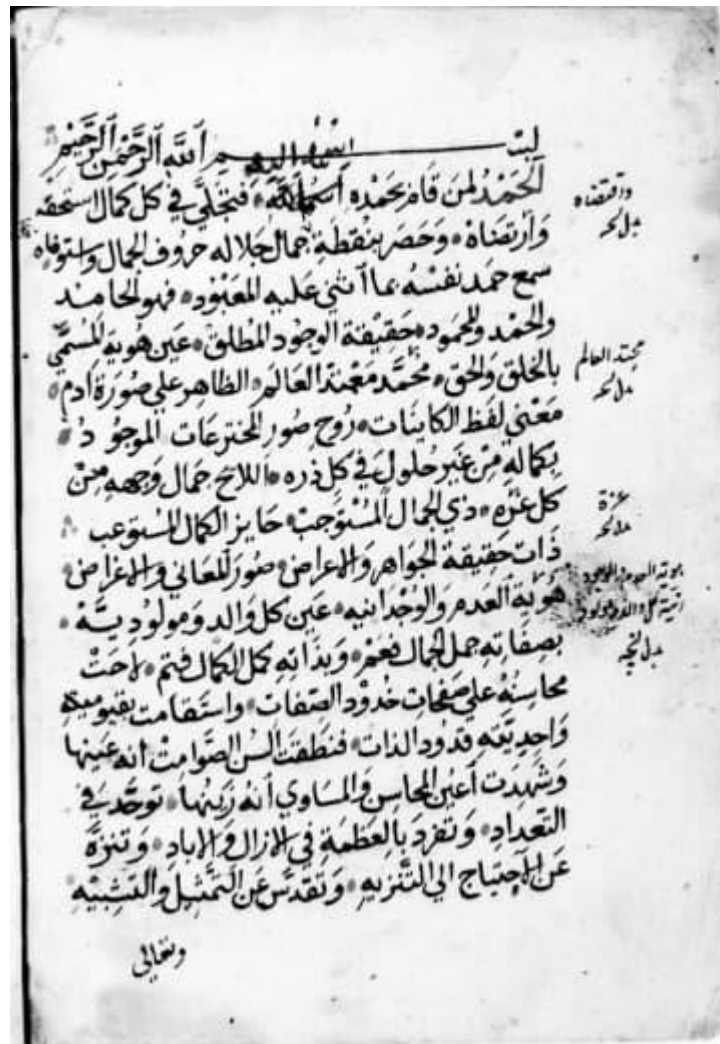 بسم الله الرحمن الرحيم
الحمد لمن قام بحمده اسم الله فتجلى في كل كمال استحقه
وارتضاه وحصر بنقطة جمال جلاله حروف الجمال واستوفاه
سمع حمد نفسه بما أثني عليه المعبود فهو الحامد
والحمد والمحمود حقيقة الوجود المطلق عين هوية المسمي
بالخلق والحق محمد العالم الظاهر علي صورة ادم
معنى لفظ الكاينات روح صور المخترعات الموجود
بكماله من غير حلول في كل ذره اللايح جمال وجهه من
كل غره ذي الجمال المستوجب حايز الكمال المستوعب
ذات حقيقة الجواهر والاعراض صور المعاني والاغراض
هوية العدم والوحدانيه عين كل والد ومولوديه
بصفاته جمل الجمال فعم وبذاته كمل الكمال فتم لاحت
محاسنه علي صفحات خدود الصفات واستقامت بقيومية
واحديته قدود الذات فنطقت ألسن الصوامت أنه عينها
وشهدت أعين المحاسن والمساوي أنه زينها توحد في
التعداد وتفرد بالعظمة في الازال والاباد وتنزه
عن الاحتياج الي التنزيه وتقدس عن التمثيل والتشبيه
وتعالى
واقتضاه
العالم
عزة